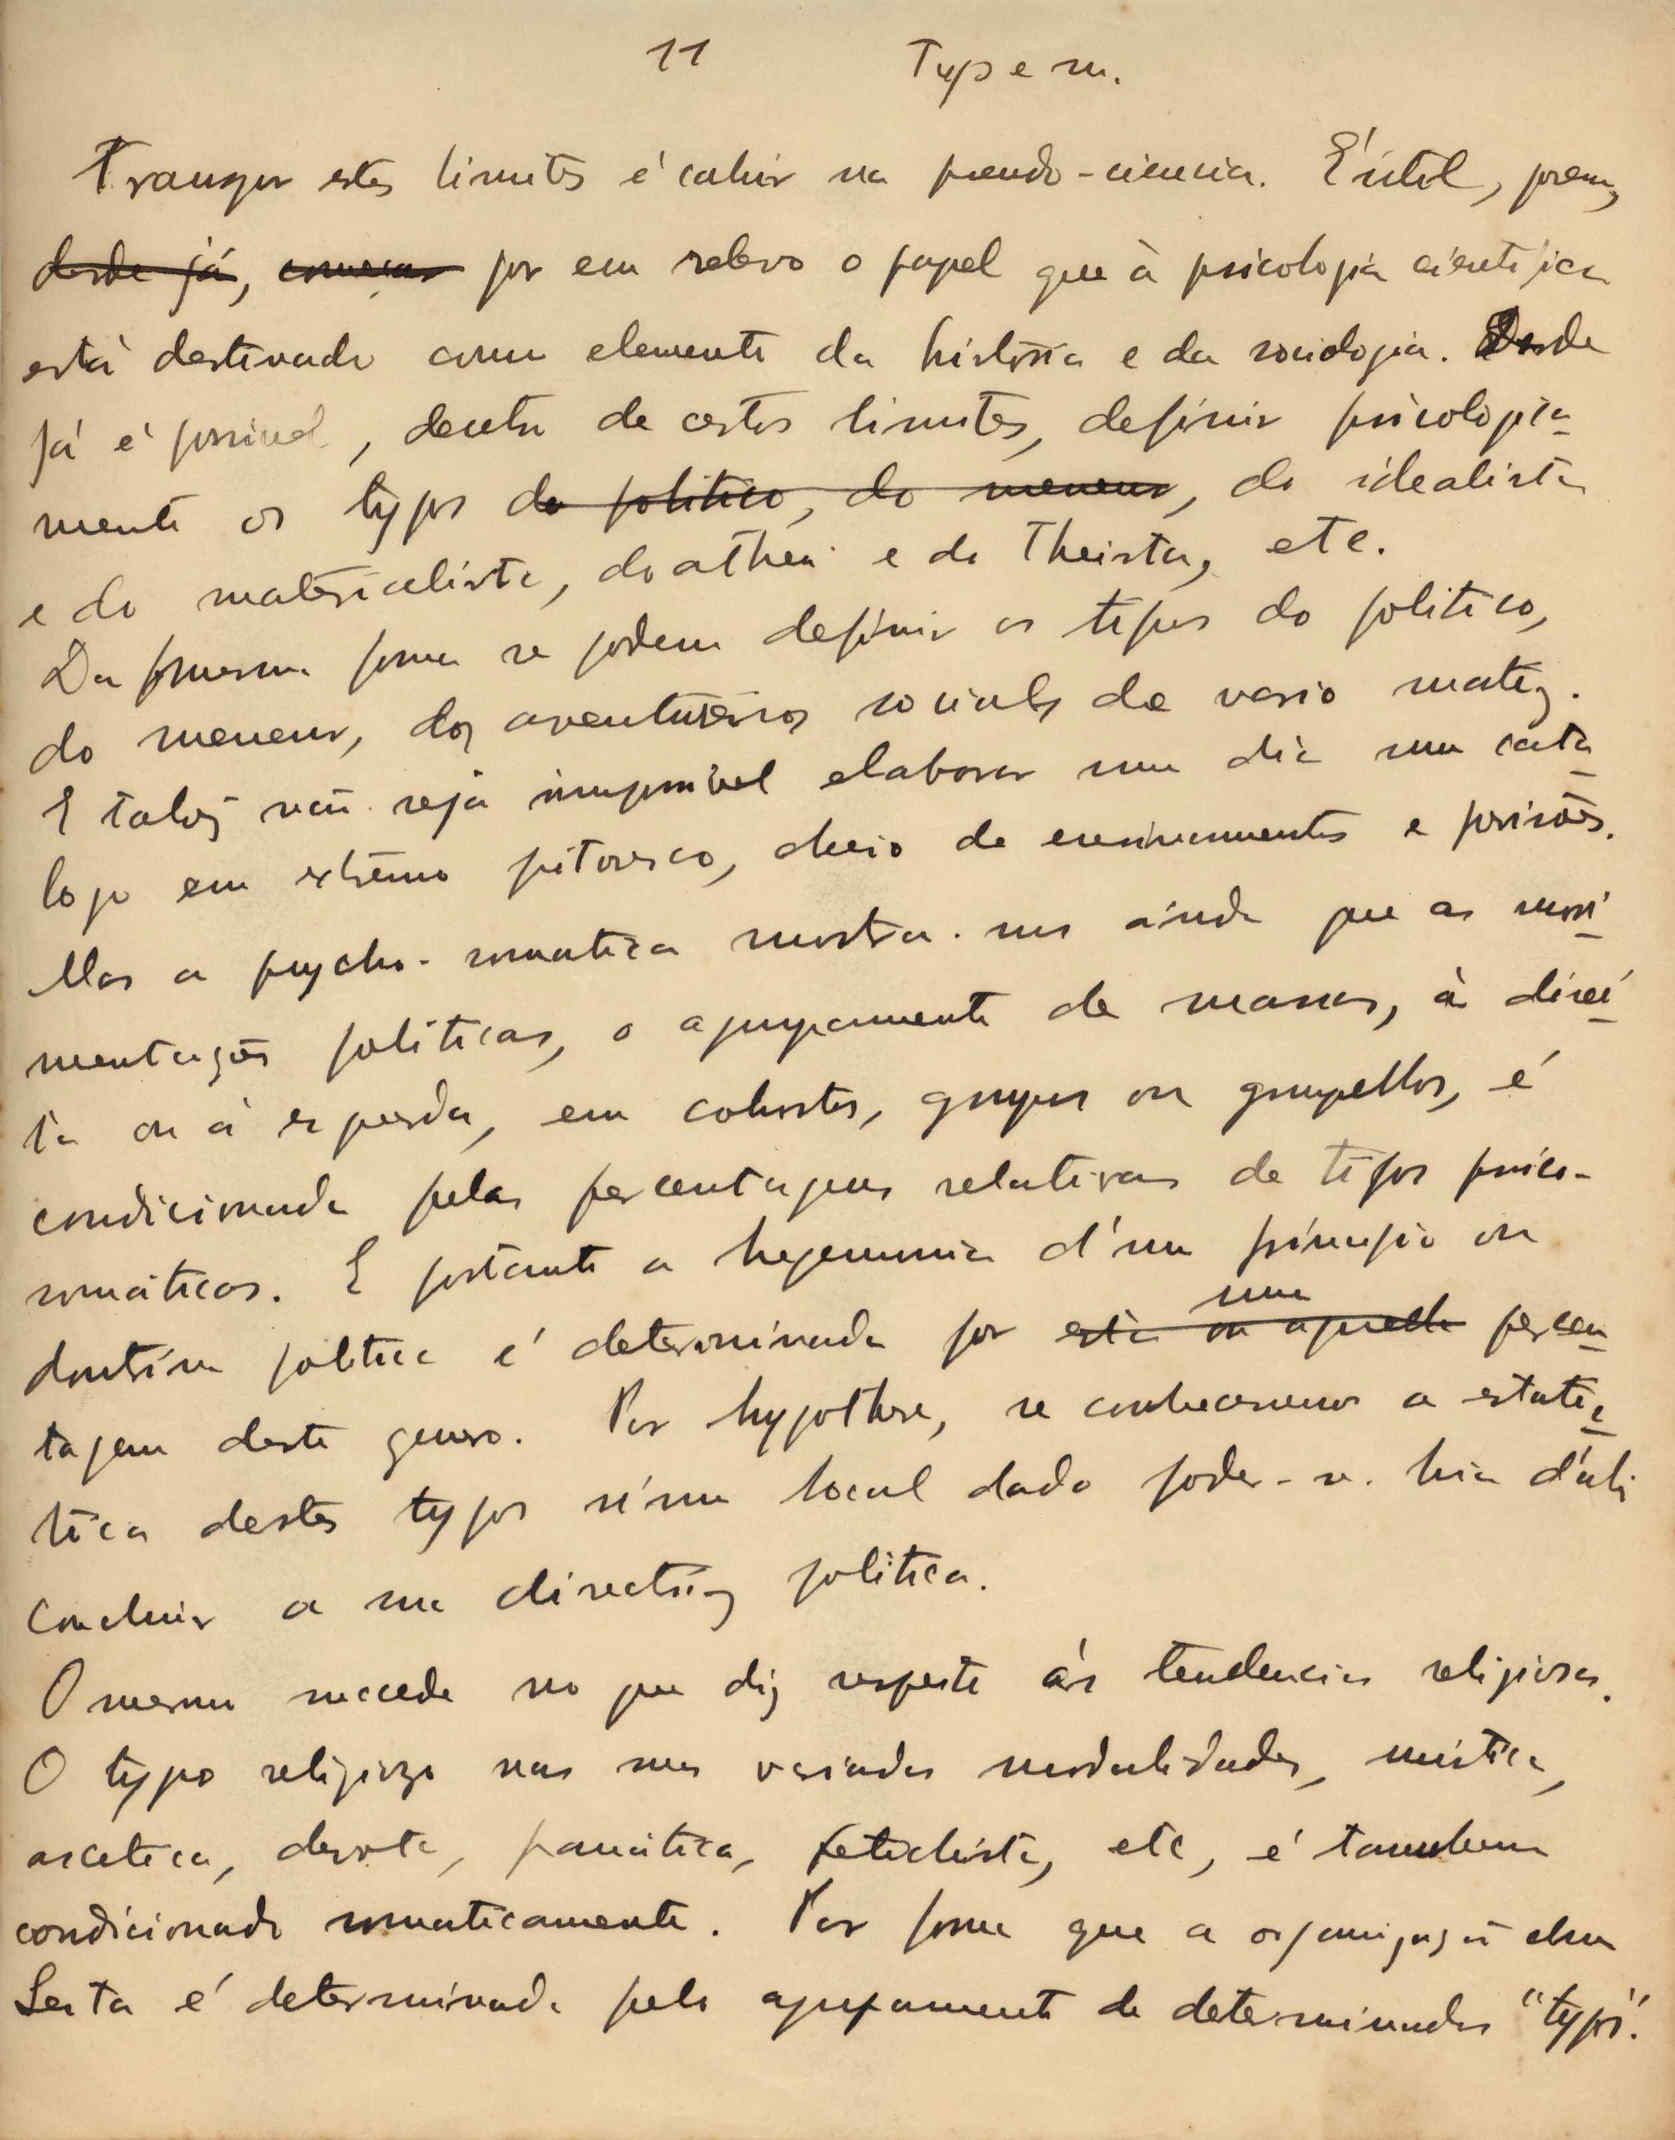 11 Typ e m.
Franger estes limites é cahir na pseudo-ciencia. É útil, porem,
desde já, começar por em relevo o papel que à psicologia cientifica
está destinado como elemento da história e da sociologia. Desde
já é possivel, dentro de certos limites, definir psicologica-
mente os typos do politico, do meneur, do idealista
e do materialista, do atheu e do Theista, etc.
Da mesma forma se podem definir os tipos do politico,
do meneur, dos aventureiros sociais de vario matiz.
E talvez não seja impossivel elaborar um dia um cata-
logo em extremo pitoresco, cheio de ensinamentos e previsões.
Mas a psycho-somatica mostra-nos ainda que as movi-
mentações politicas, o agrupamento de massas, à direi-
ta ou à esquerda, em cohortes, grupos ou grupellos, é
condicionada pelas percentagens relativas de tipos psico-
somáticos. E portanto a hegemonia d'um principio ou
doutrina politica é determinada por esta ou aquella uma percen-
tagem deste genero. Por hypothese, se conhecessemos a estatis-
tica destes typos n'um local dado poder-se-hia d'ahi
concluir a sua directriz politica.
O mesmo succede no que diz respeito às tendencias religiosas.
O typo religioso nas suas variadas modalidades, mistica,
ascetica, devota, fanática, fetichista, etc, é tambem
condicionado somaticamente. Por forma que a organização duma
Seita é determinada pelo agrupamento de determinados "typos".